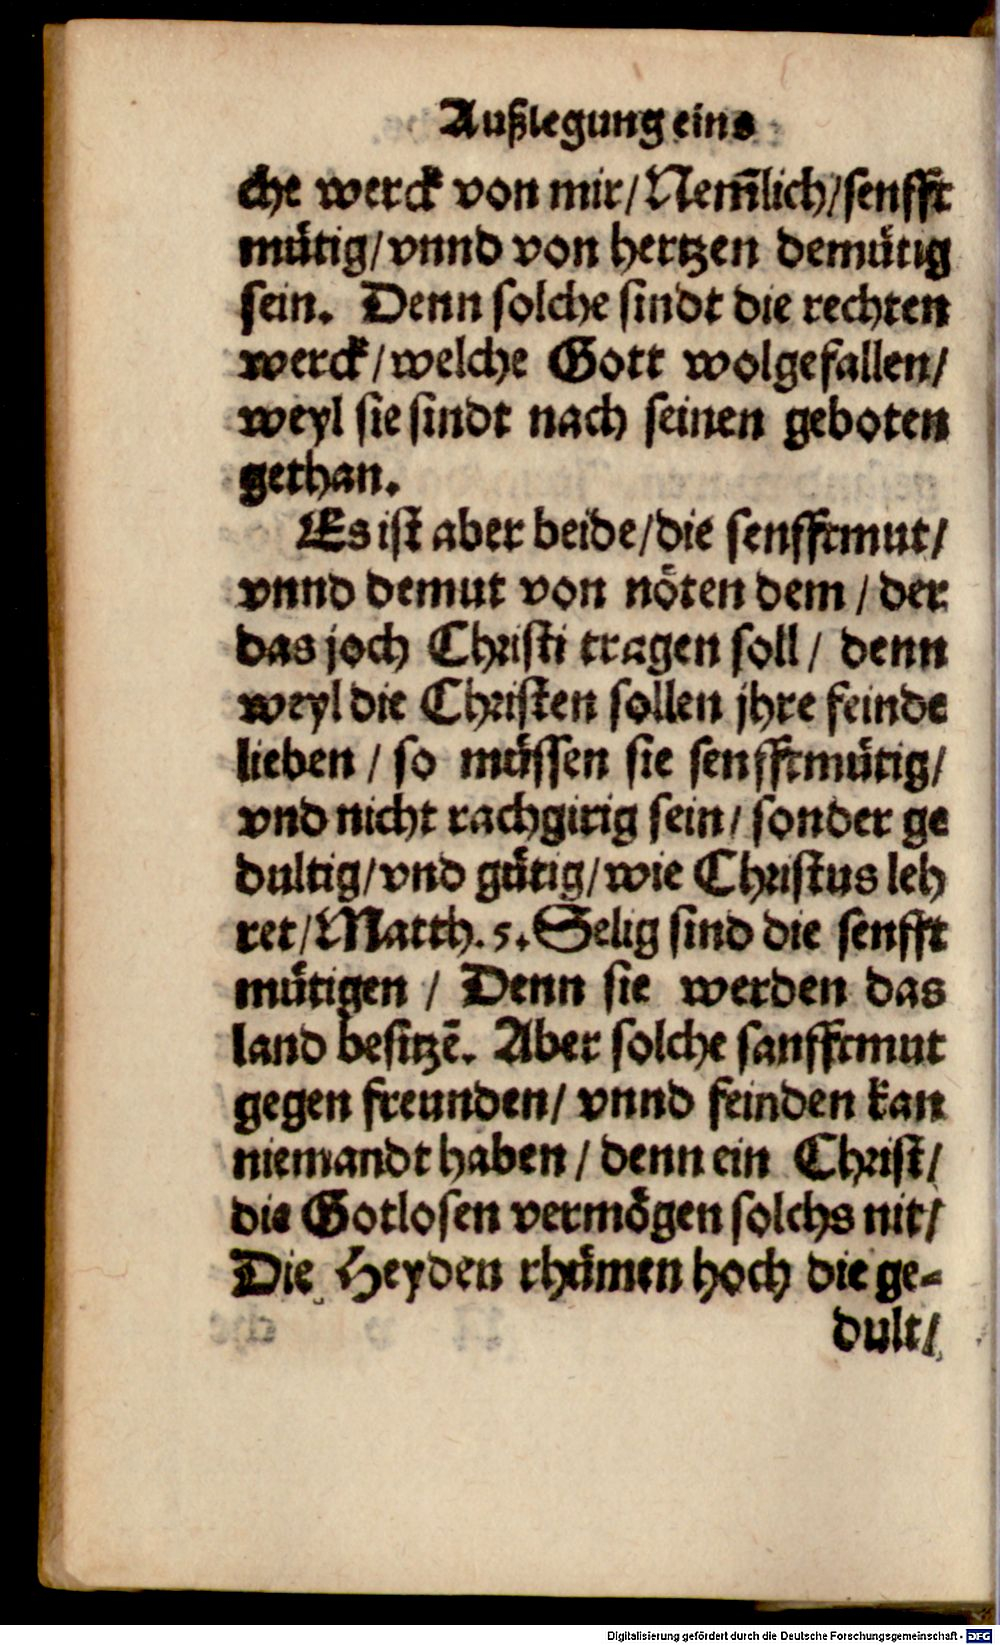 Außlegung eins
che werck von mir/Nem̃lich/senfft
muͤtig/vnnd von hertzen demuͤtig
sein. Denn solche sindt die rechten
werck/welche Gott wolgefallen/
weyl sie sindt nach seinen geboten
gethan.
Es ist aber beide/die senfftmut/
vnnd demut von noͤten dem/der
das joch Christi tragen soll/ denn
weyl die Christen sollen jhre feinde
lieben/so muͤssen sie senfftmuͤtig/
vnd nicht rachgirig sein/sonder ge
dultig/vnd guͤtig/wie Christus leh
ret/Matth. 5. Selig sind die senfft
muͤtigen/Denn sie werden das
land besitzẽ. Aber solche sanfftmut
gegen freunden/ vnnd feinden kan
niemandt haben/denn ein Christ/
die Gotlosen vermoͤgen solchs nit/
Die Heyden rhuͤmen hoch die ge-
dult/
Digitalisierung gefördert durch die Deutsche Forschungsgemeinschaft - DFG